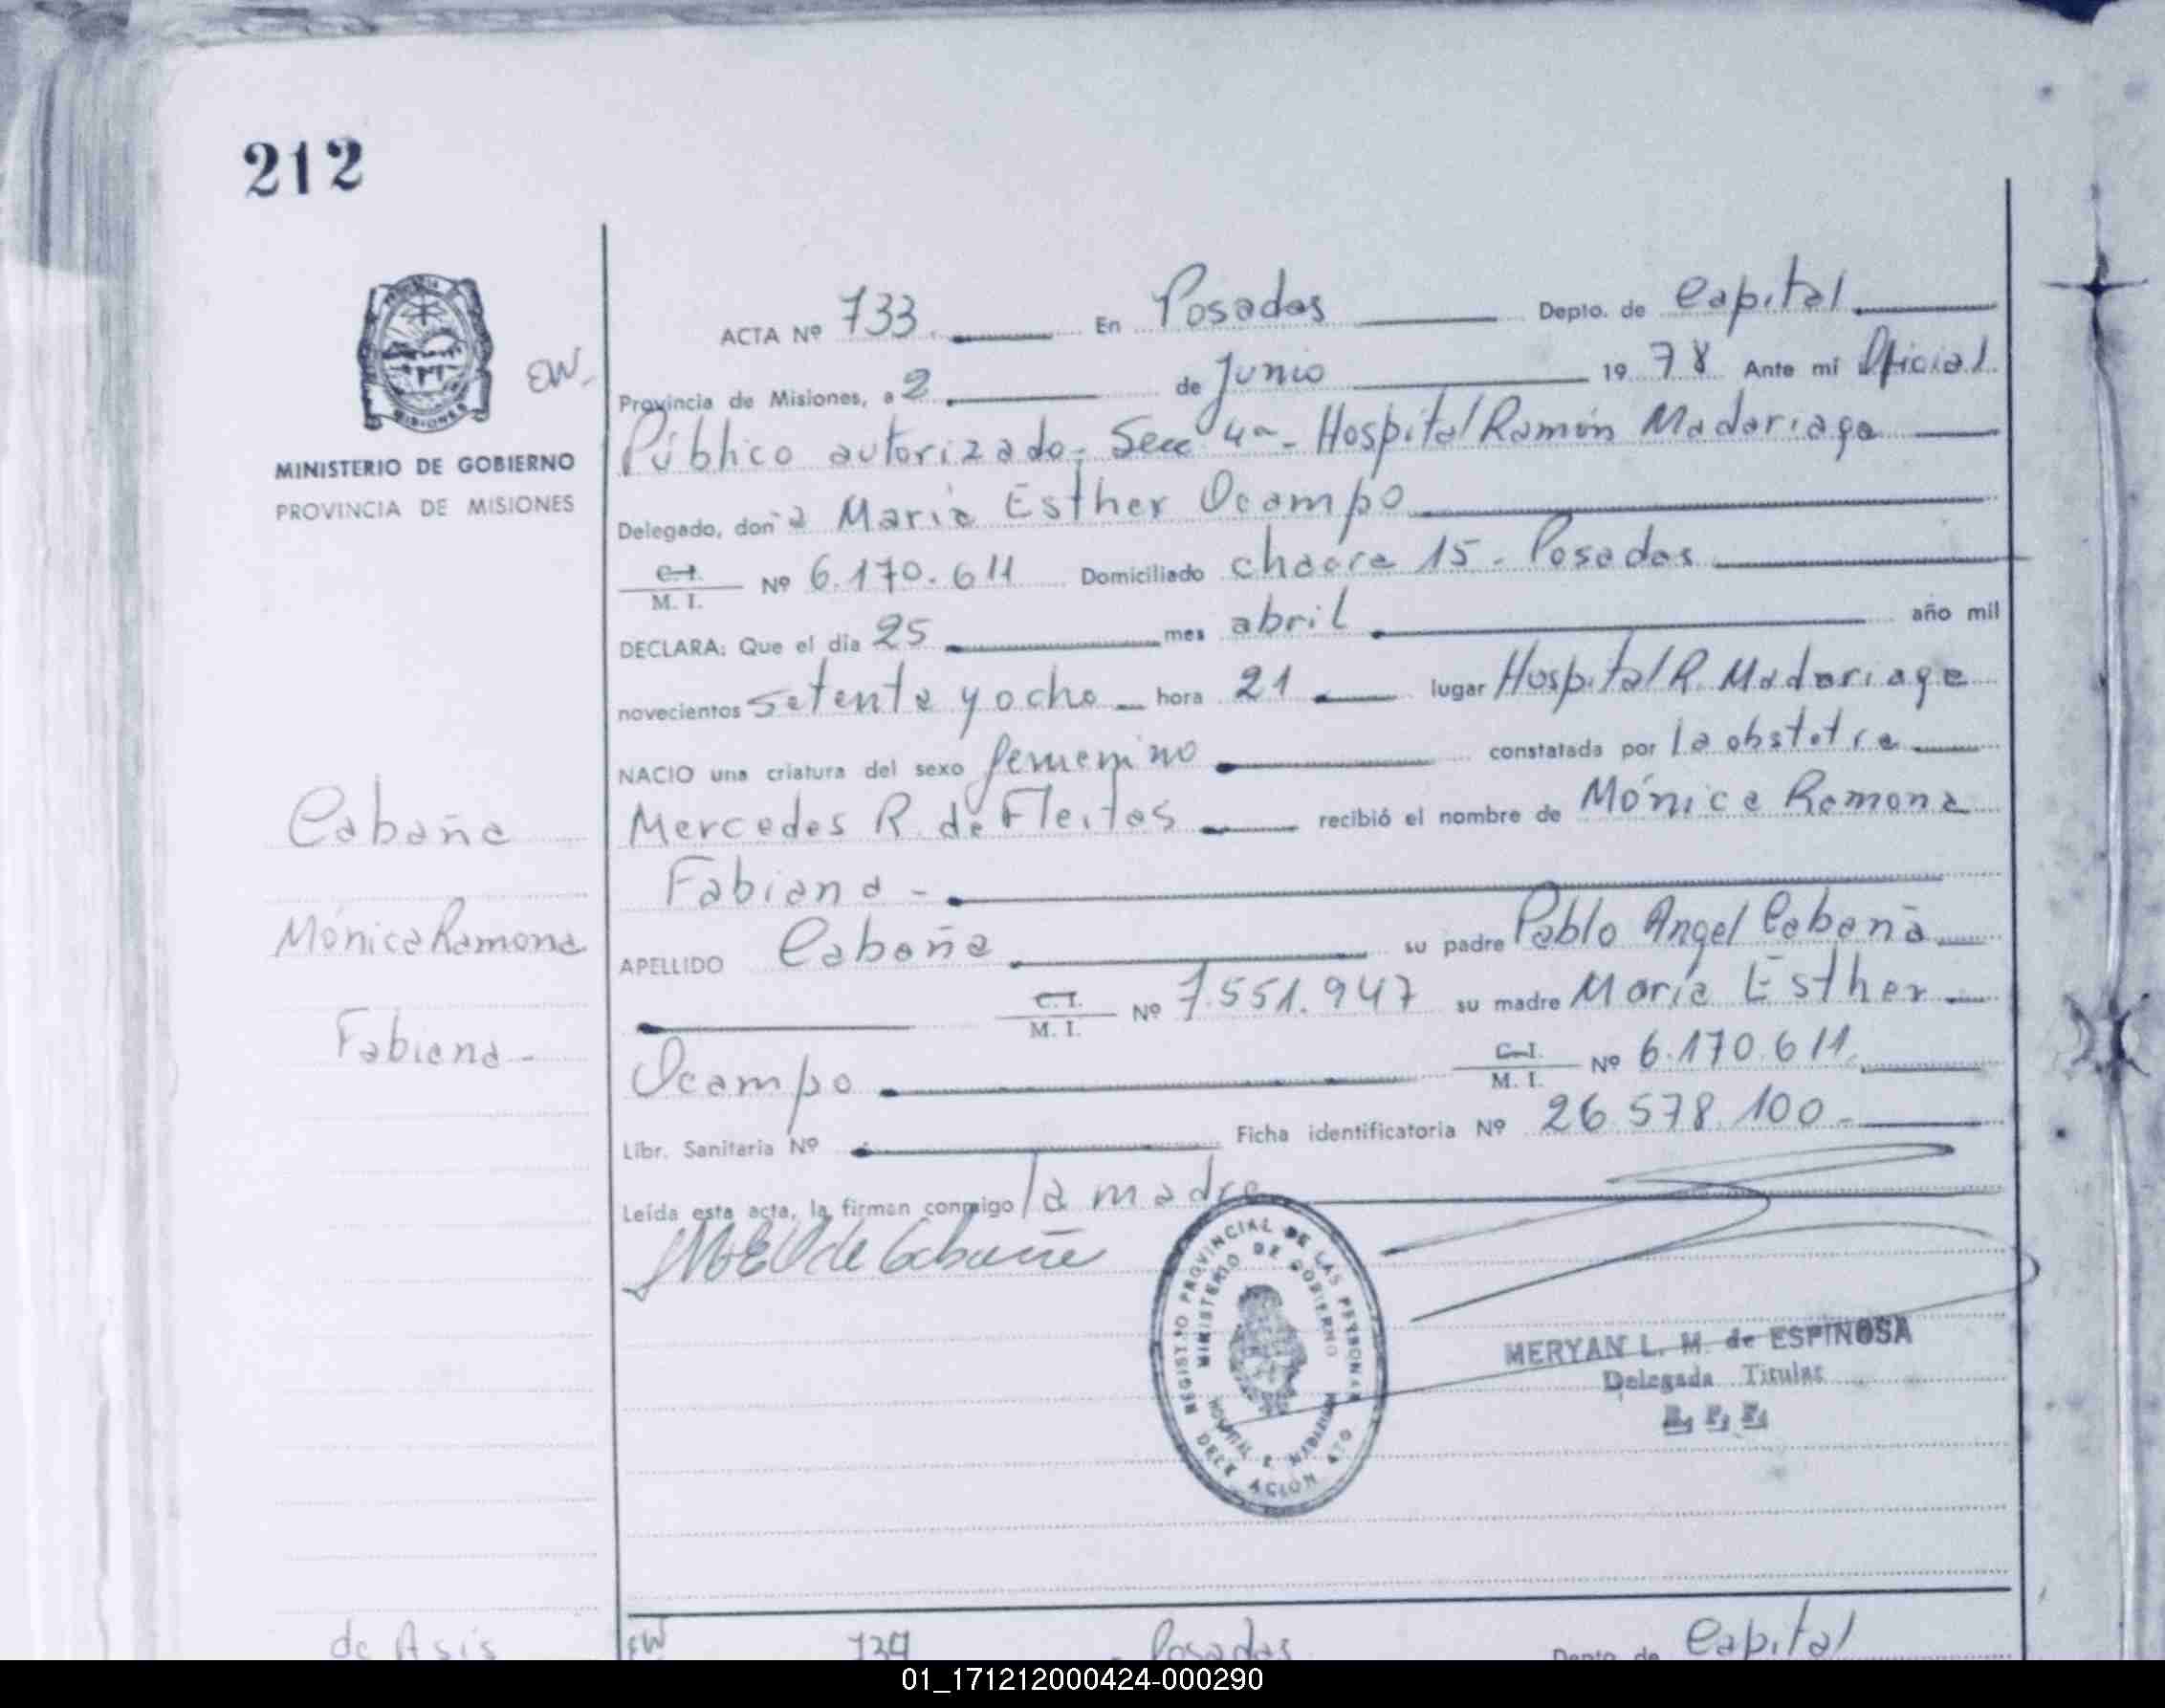 212
MINISTERIO DE GOBIERNO
PROVINCIA DE MISIONES
EW.
Cabaña
Mónica Ramona
Fabiana -
ACTA Nº 733. En Posadas Depto. de Capital
Provincia de Misiones, a 2 de Junio 1978 Ante mí Oficial
Público autorizado - Secc 4a - Hospital Ramón Madariaga
Delegado, doña María Esther Ocampo
C.I. M. I. Nº 6.170.611 Domiciliado chacra 15 - Posadas
DECLARA: Que el día 25 mes abril año mil
novecientos setenta y ocho hora 21 lugar Hospital R. Madariaga
NACIO una criatura del sexo femenino constatada por la obstetra
Mercedes R. de Fleitas recibió el nombre de Mónica Ramona
Fabiana -
APELLIDO Cabaña su padre Pablo Angel Cabaña
C.I. M. I. Nº 7.551.947 su madre María Esther
Ocampo C.I. M. I. Nº 6.170.611
Libr. Sanitaria Nº Ficha identificatoria Nº 26.578.100 -
Leída esta acta, la firman conmigo la madre
M E O de Cabaña
REGISTRO PROVINCIAL DE LAS PERSONAS
MINISTERIO DE GOBIERNO
HOSPITAL R. MADARIAGA
DELEGACION
MERYAN L. M. de ESPINOSA
Delegada Titular
de Asís
EW 734 Posadas Depto. de Capital
01_171212000424-000290